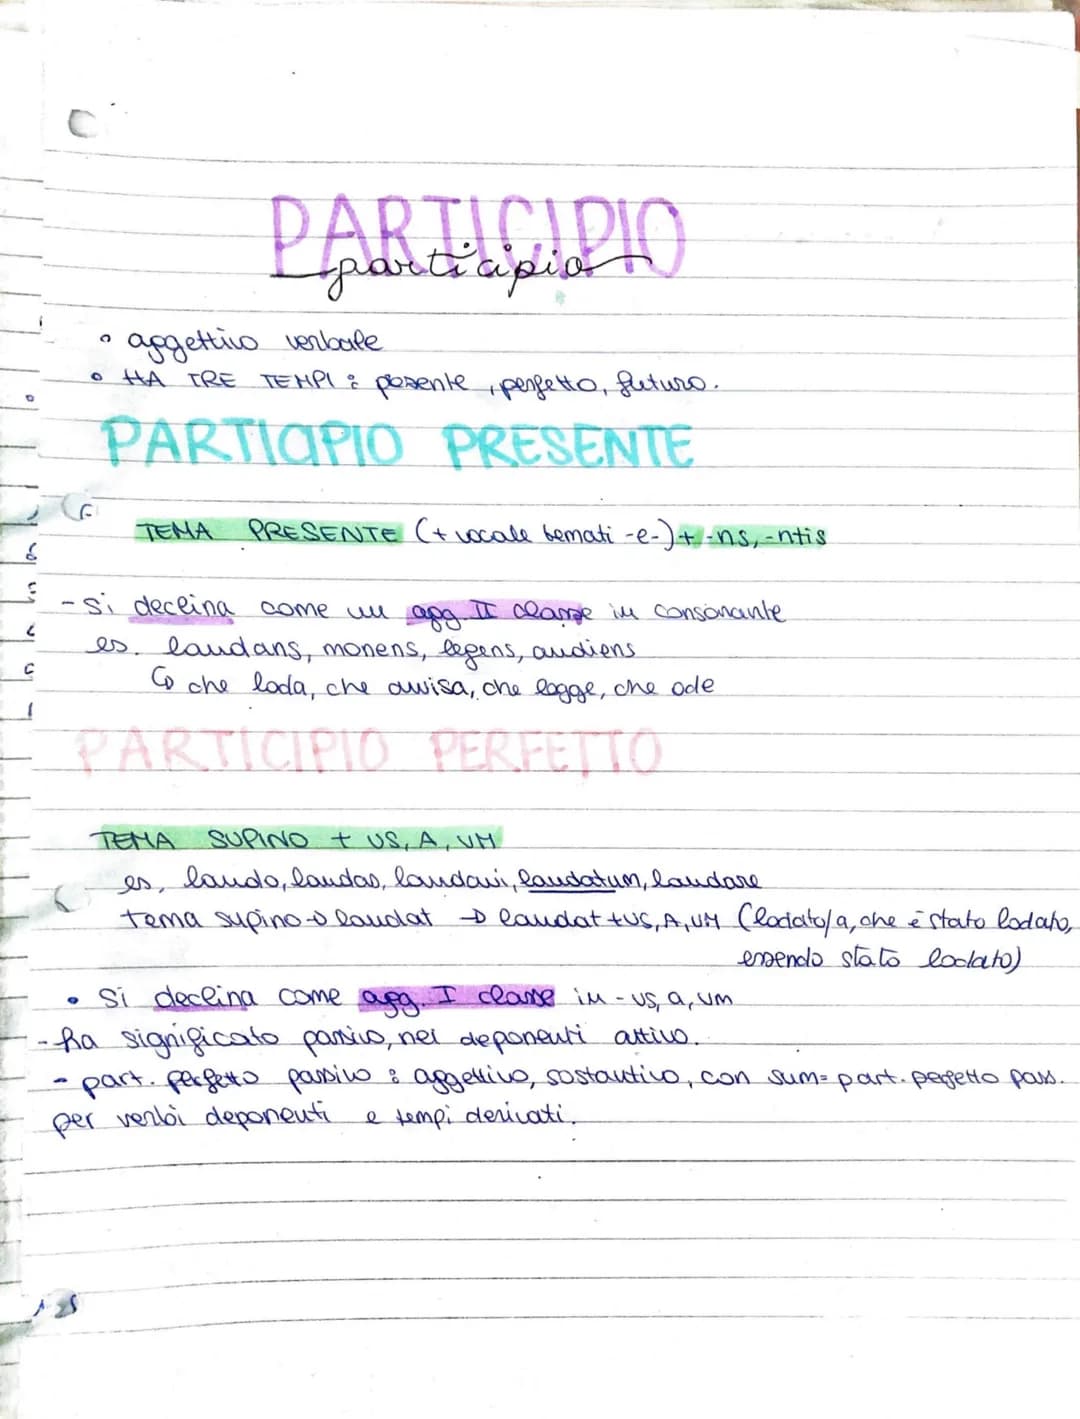 PARTICIPIO
participio
• aggettivo verbale
• HA TRE TEMPI : presente, perfetto, futuro.
PARTICIPIO PRESENTE
TEMA PRESENTE (+ vocale temati -e-) + -ns, -ntis
- si declina come un agg. II classe in consonante
es. laudans, monens, legens, audiens
↳ che loda, che avvisa, che legge, che ode
PARTICIPIO PERFETTO
TEMA SUPINO + US, A, UM
es, laudo, laudas, laudavi, laudatum, laudare
tema supino → laudat → laudat + US, A, UM (lodato/a, che è stato lodato,
essendo stato lodato)
• Si declina come agg. I classe in -us, a, um
- ha significato passivo, nei deponenti attivo.
- part. perfetto passivo : aggettivo, sostantivo, con sum = part. perfetto pass.
per verbi deponenti e tempi derivati.